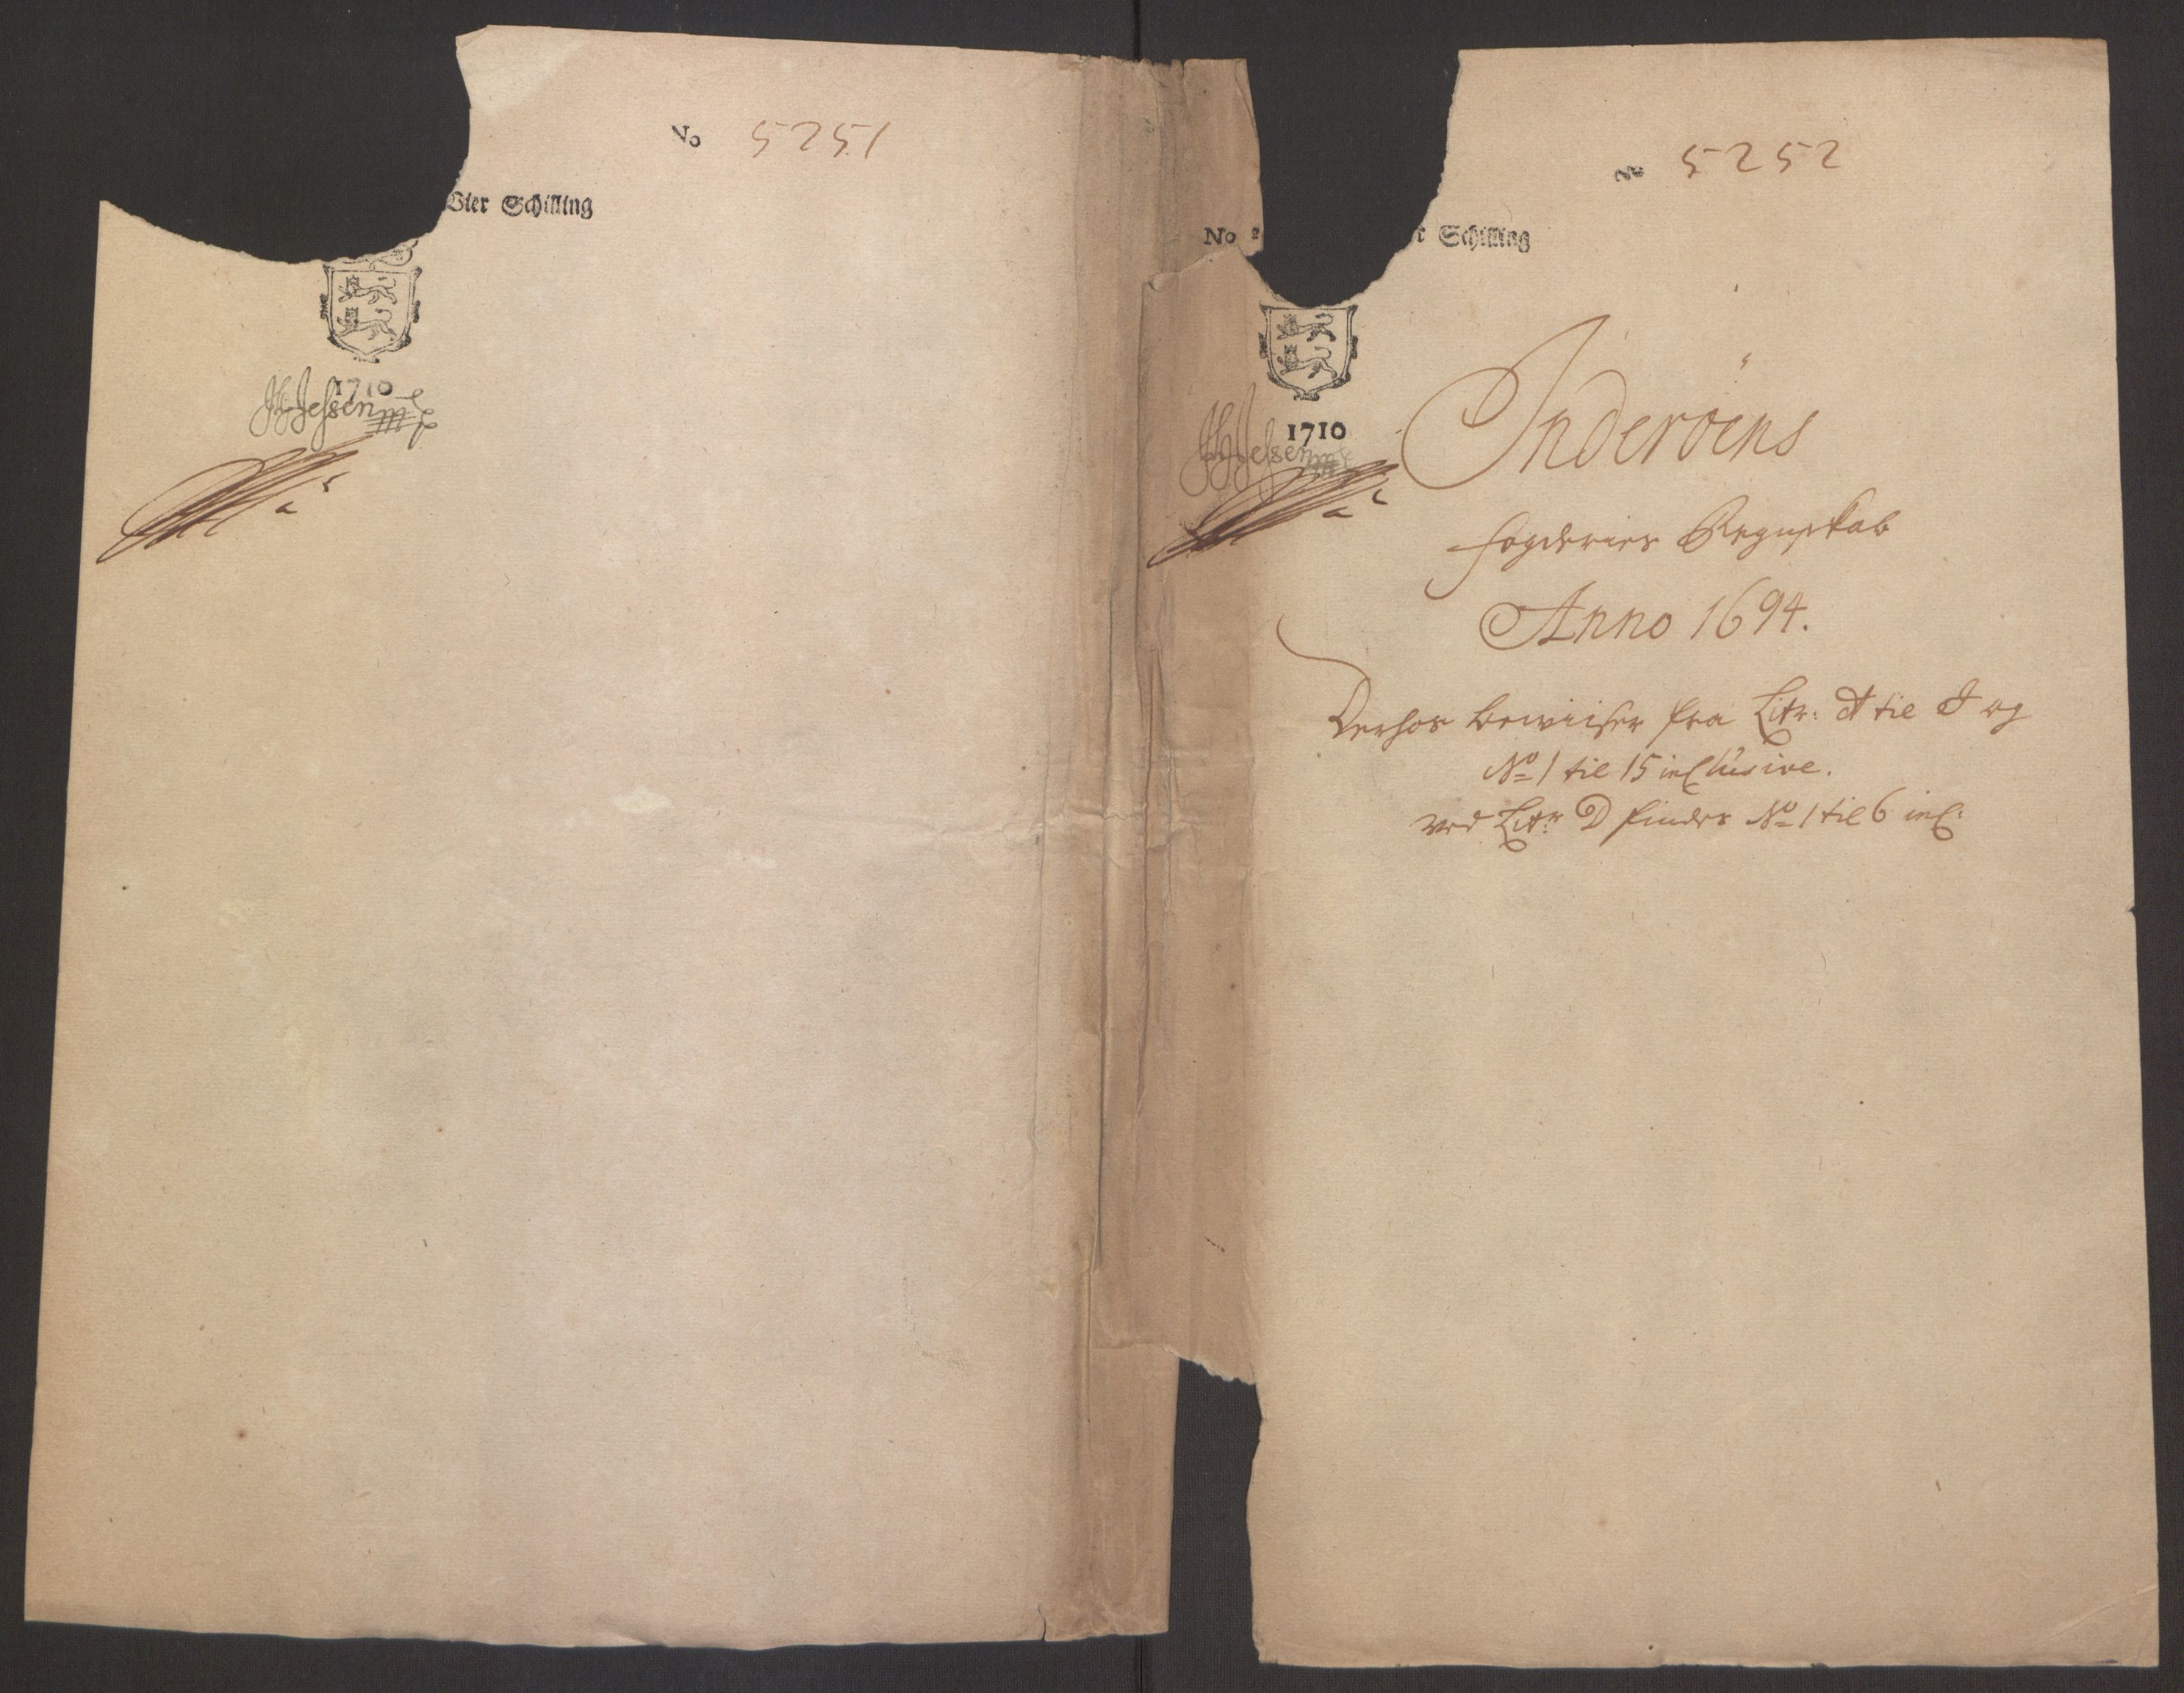 No 5251
Vier Schilling
1710
HJessen
No 5252
No
Schilling
1710
HJessen
Inderöens
Fogderies Regnskab
Anno 1694.
Derhos bewiiser fra Litr: A til I og
No 1 til 15 inclusive.
ved Litr D findes No 1 til 6 incl: